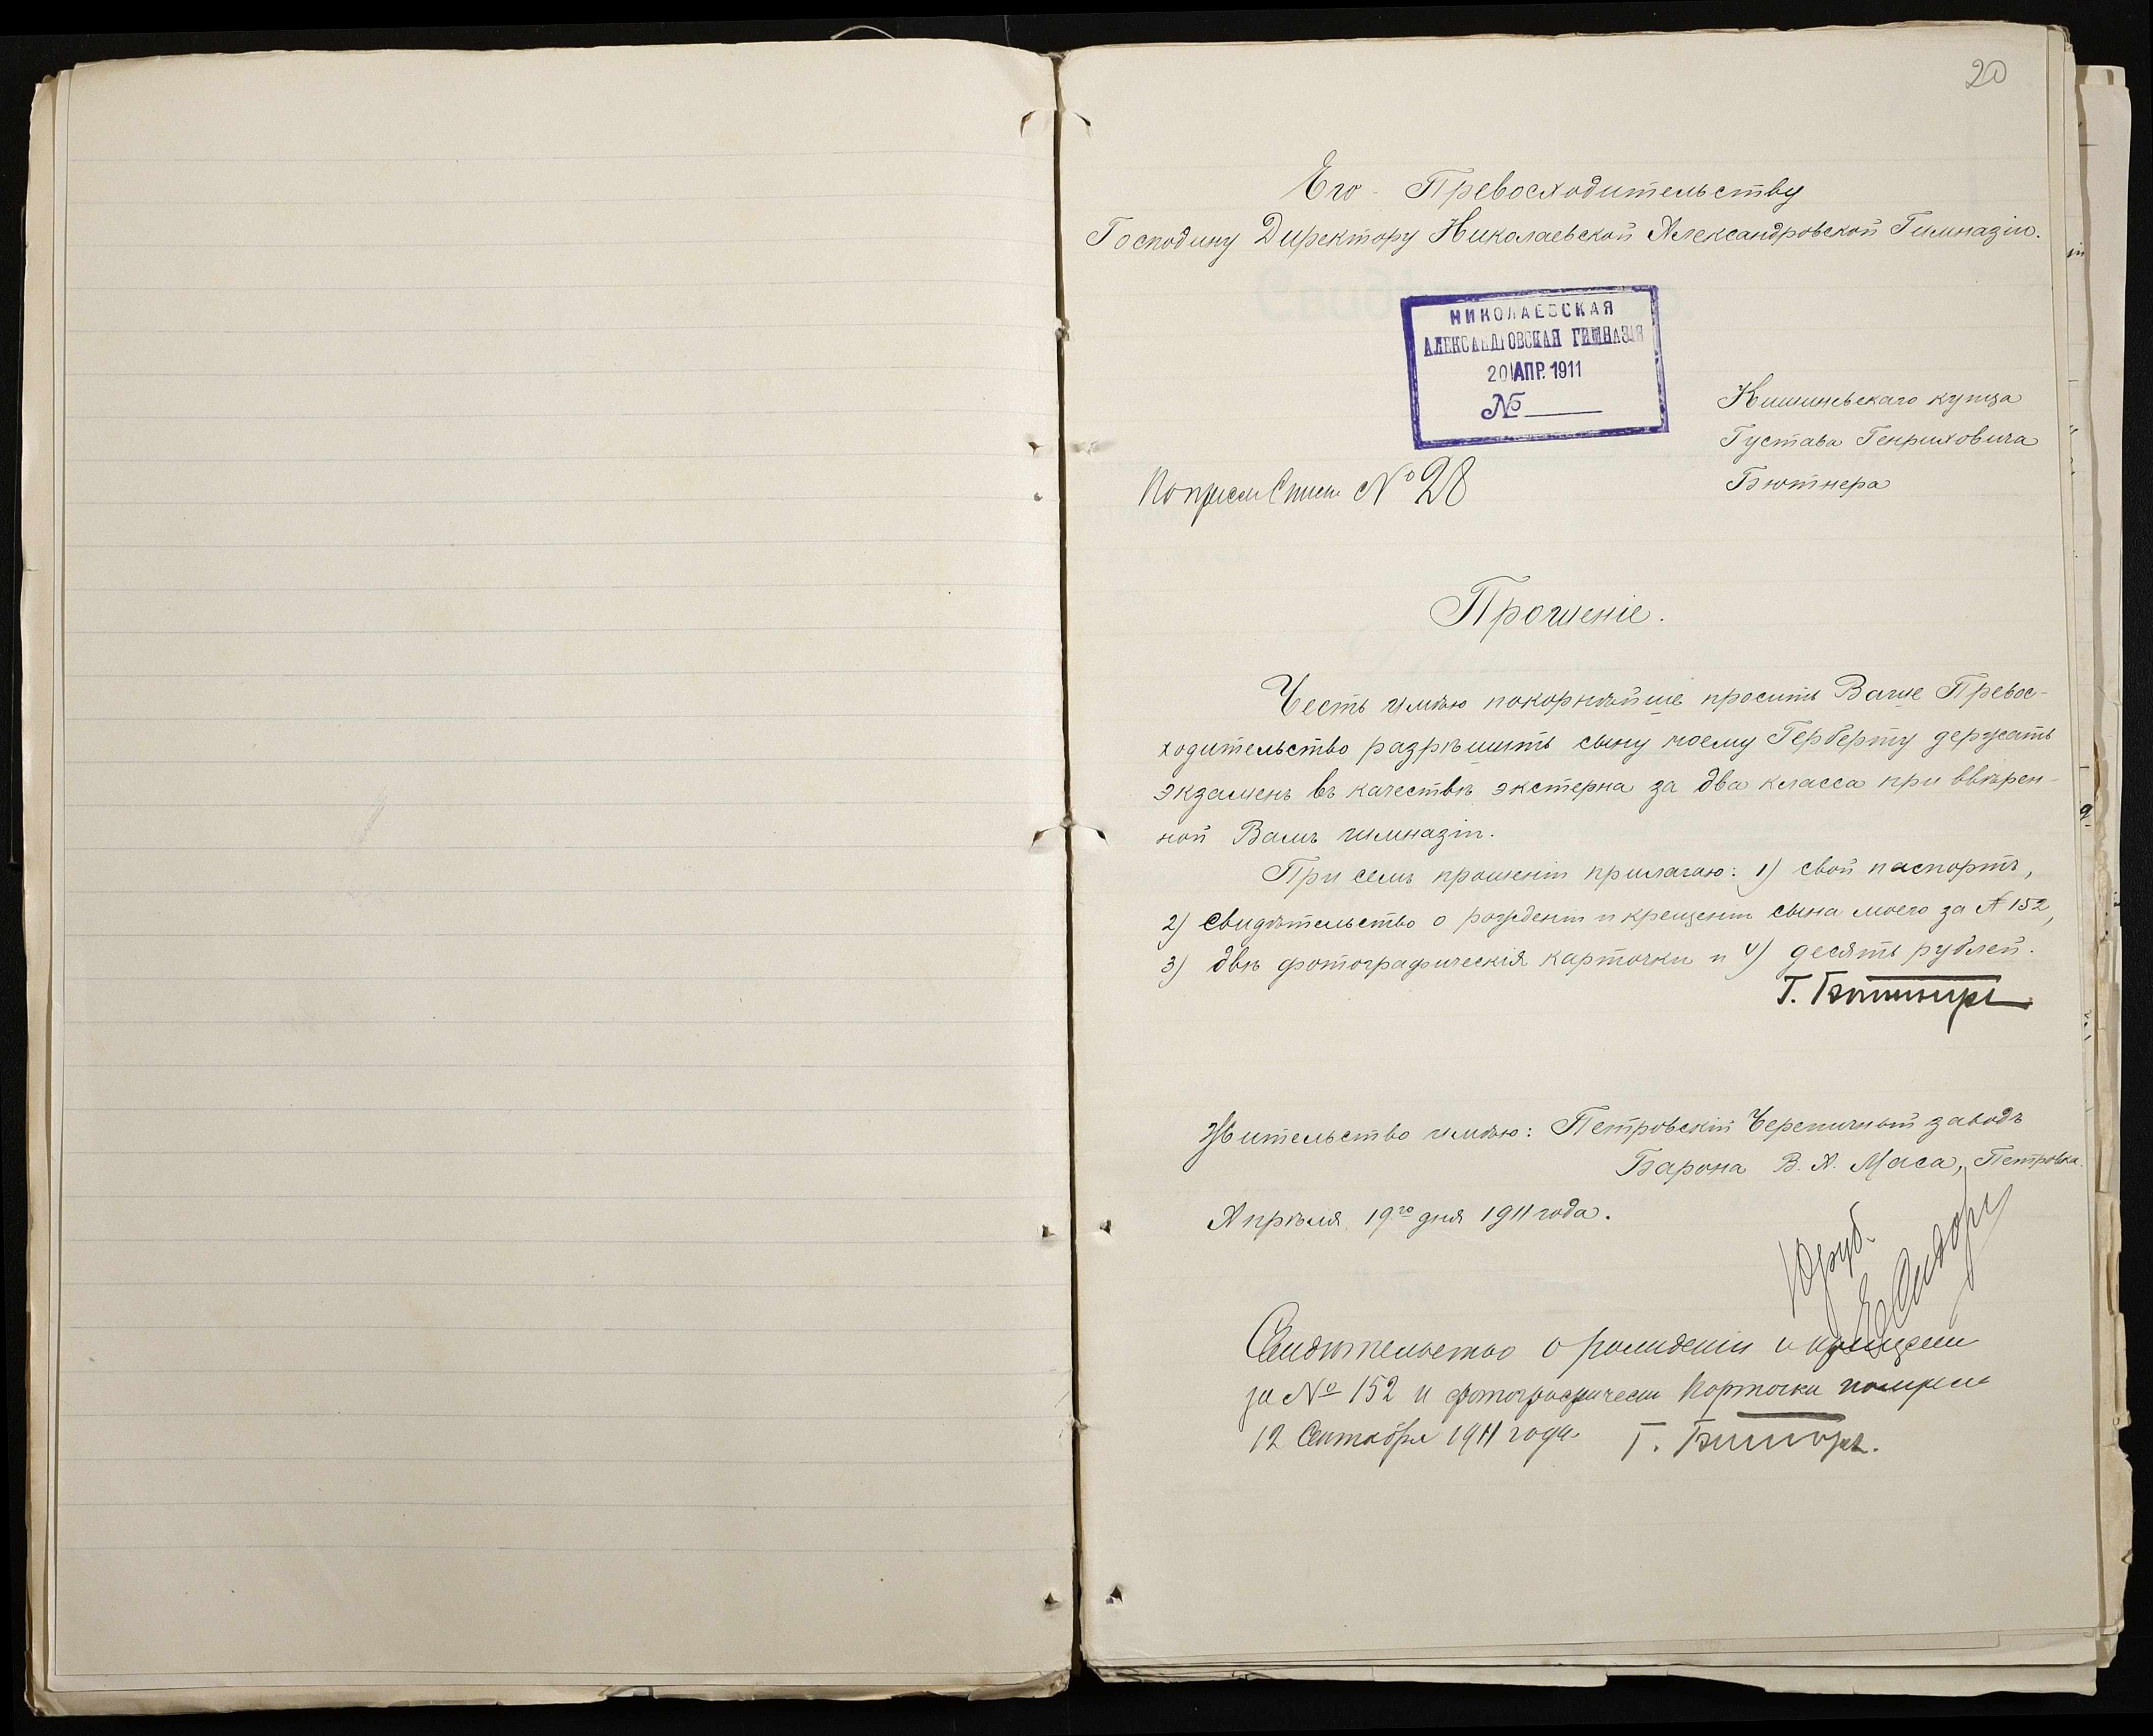 20
Его Превосходительству
Господину Директору Николаевской Александровской Гимназіи.
НИКОЛАЕВСКАЯ
АЛЕКСАНДРОВСКАЯ ГИМНАЗІЯ
20 АПР. 1911
№
Кишиневскаго купца
Густава Генриховича
Бютнера
№ 28
Прошеніе.
Честь имѣю покорнѣйше просить Ваше Превос-
ходительство разрѣшить сыну моему Герберту держать
экзаменъ въ качествѣ экстерна за два класса при ввѣрен-
ной Вамъ гимназіи.
При семъ прошеніи прилагаю: 1) свой паспортъ,
2) свидѣтельство о рожденіи и крещеніи сына моего за № 152,
3) двѣ фотографическія карточки и 4) десять рублей.
Г. Бютнеръ
Жительство имѣю: Петровскій Черепичный заводъ
Барона В. А. Маса, Петровка.
Апрѣля 19го дня 1911 года.
10 руб.
Свидѣтельство о рожденіи и крещеніи
за № 152 и фотографическ карточки
12 Сентября 1911 года Г. Бютнеръ.